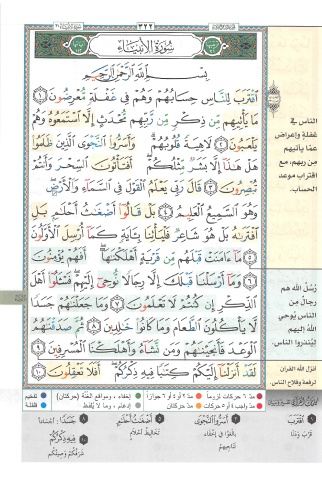 ٣٢٢
سُورَةُ الأَنبِيَاءِ
بِسْمِ اللَّهِ الرَّحْمَٰنِ الرَّحِيمِ
ٱقْتَرَبَ لِلنَّاسِ حِسَابُهُمْ وَهُمْ فِى غَفْلَةٍ مُّعْرِضُونَ ١
مَا يَأْتِيهِم مِّن ذِكْرٍ مِّن رَّبِّهِم مُّحْدَثٍ إِلَّا ٱسْتَمَعُوهُ وَهُمْ
يَلْعَبُونَ ٢ لَاهِيَةً قُلُوبُهُمْ وَأَسَرُّوا۟ ٱلنَّجْوَى ٱلَّذِينَ ظَلَمُوا۟
هَلْ هَٰذَآ إِلَّا بَشَرٌ مِّثْلُكُمْ أَفَتَأْتُونَ ٱلسِّحْرَ وَأَنتُمْ
تُبْصِرُونَ ٣ قَالَ رَبِّى يَعْلَمُ ٱلْقَوْلَ فِى ٱلسَّمَآءِ وَٱلْأَرْضِ
وَهُوَ ٱلسَّمِيعُ ٱلْعَلِيمُ ٤ بَلْ قَالُوٓا۟ أَضْغَٰثُ أَحْلَٰمٍ بَلِ
ٱفْتَرَىٰهُ بَلْ هُوَ شَاعِرٌ فَلْيَأْتِنَا بِـَٔايَةٍ كَمَآ أُرْسِلَ ٱلْأَوَّلُونَ
٥ مَآ ءَامَنَتْ قَبْلَهُم مِّن قَرْيَةٍ أَهْلَكْنَٰهَآ أَفَهُمْ يُؤْمِنُونَ
٦ وَمَآ أَرْسَلْنَا قَبْلَكَ إِلَّا رِجَالًا نُّوحِىٓ إِلَيْهِمْ فَسْـَٔلُوٓا۟ أَهْلَ
ٱلذِّكْرِ إِن كُنتُمْ لَا تَعْلَمُونَ ٧ وَمَا جَعَلْنَٰهُمْ جَسَدًا
لَّا يَأْكُلُونَ ٱلطَّعَامَ وَمَا كَانُوا۟ خَٰلِدِينَ ٨ ثُمَّ صَدَقْنَٰهُمُ
ٱلْوَعْدَ فَأَنجَيْنَٰهُمْ وَمَن نَّشَآءُ وَأَهْلَكْنَا ٱلْمُسْرِفِينَ ٩
لَقَدْ أَنزَلْنَآ إِلَيْكُمْ كِتَٰبًا فِيهِ ذِكْرُكُمْ أَفَلَا تَعْقِلُونَ ١٠
الناس في
غفلة وإعراض
عمّا يأتيهم
من ربهم، مع
اقتراب موعد
الحساب.
رُسُل الله هم
رجال من
الناس يوحي
الله إليهم
ليُنذروا الناس.
أنزل الله القرآن
لرفعة وفلاح الناس.
مدّ ٦ حركات لزوماً
مدّ ٢ أو ٤ أو ٦ جوازاً
إخفاء، ومواقع الغُنَّة (حركتان)
تفخيم
مدّ واجب ٤ أو ٥ حركات
مدّ حركتان
إدغام، وما لا يُلفظ
قلقلة
اقْتَرَبَ
قَرُبَ وَدَنَا
أَسَرُّوا النَّجْوَى
بَالَغُوا فِي إخْفَاءِ
تَنَاجِيهِمْ
أَضْغَاثُ أَحْلَامٍ
تَخَالِيطُ أَحْلَامٍ
جَسَدًا: أَجْسَادًا
فِيهِ ذِكْرُكُمْ
شَرَفُكُمْ وَصِيتُكُمْ